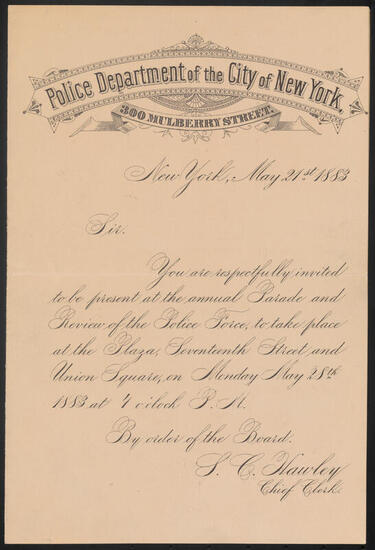 Police Department of the City of New York,
300 MULBERRY STREET.
New York, May 21st 1883
Sir.
You are respectfully invited
to be present at the annual Parade and
Review of the Police Force, to take place
at the Plaza, Seventeenth Street and
Union Square, on Monday May 28th
1883 at 4 o'clock P.M.
By order of the Board.
S. C. Hawley
Chief Clerk.